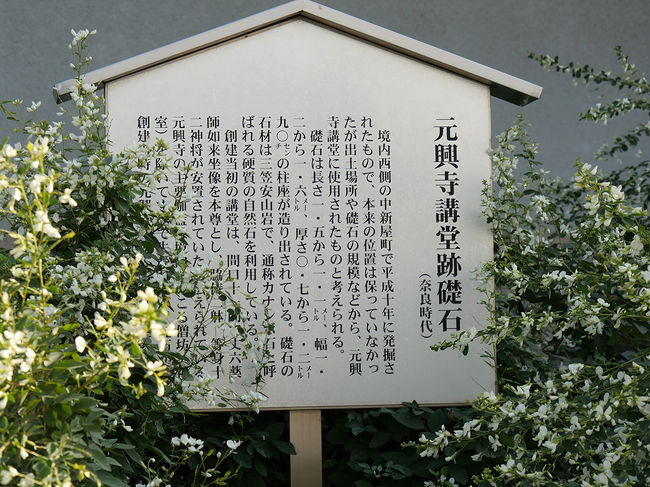 元興寺講堂跡礎石
(奈良時代)
境内西側の中新屋町で平成十年に発掘さ
れたもので、本来の位置は保っていなかっ
たが出土場所や礎石の規模などから、元興
寺講堂に使用されたものと考えられる。
礎石は長さ一・五から一・一メートル 幅一・
二から一・六メートル 厚さ〇・七から一・二メートル
九〇センチの柱座が造り出されている。礎石の
石材は三笠安山岩で、通称カナンボ石と呼
ばれる硬質の自然石を利用している。
創建当初の講堂は、間口十一間、丈六薬
師如来坐像を本尊とし、脇侍二躰 等身十
二神将が安置されていた 考えられている
元興寺の主要伽藍 ある僧坊
室)を除いて
創建 時の元